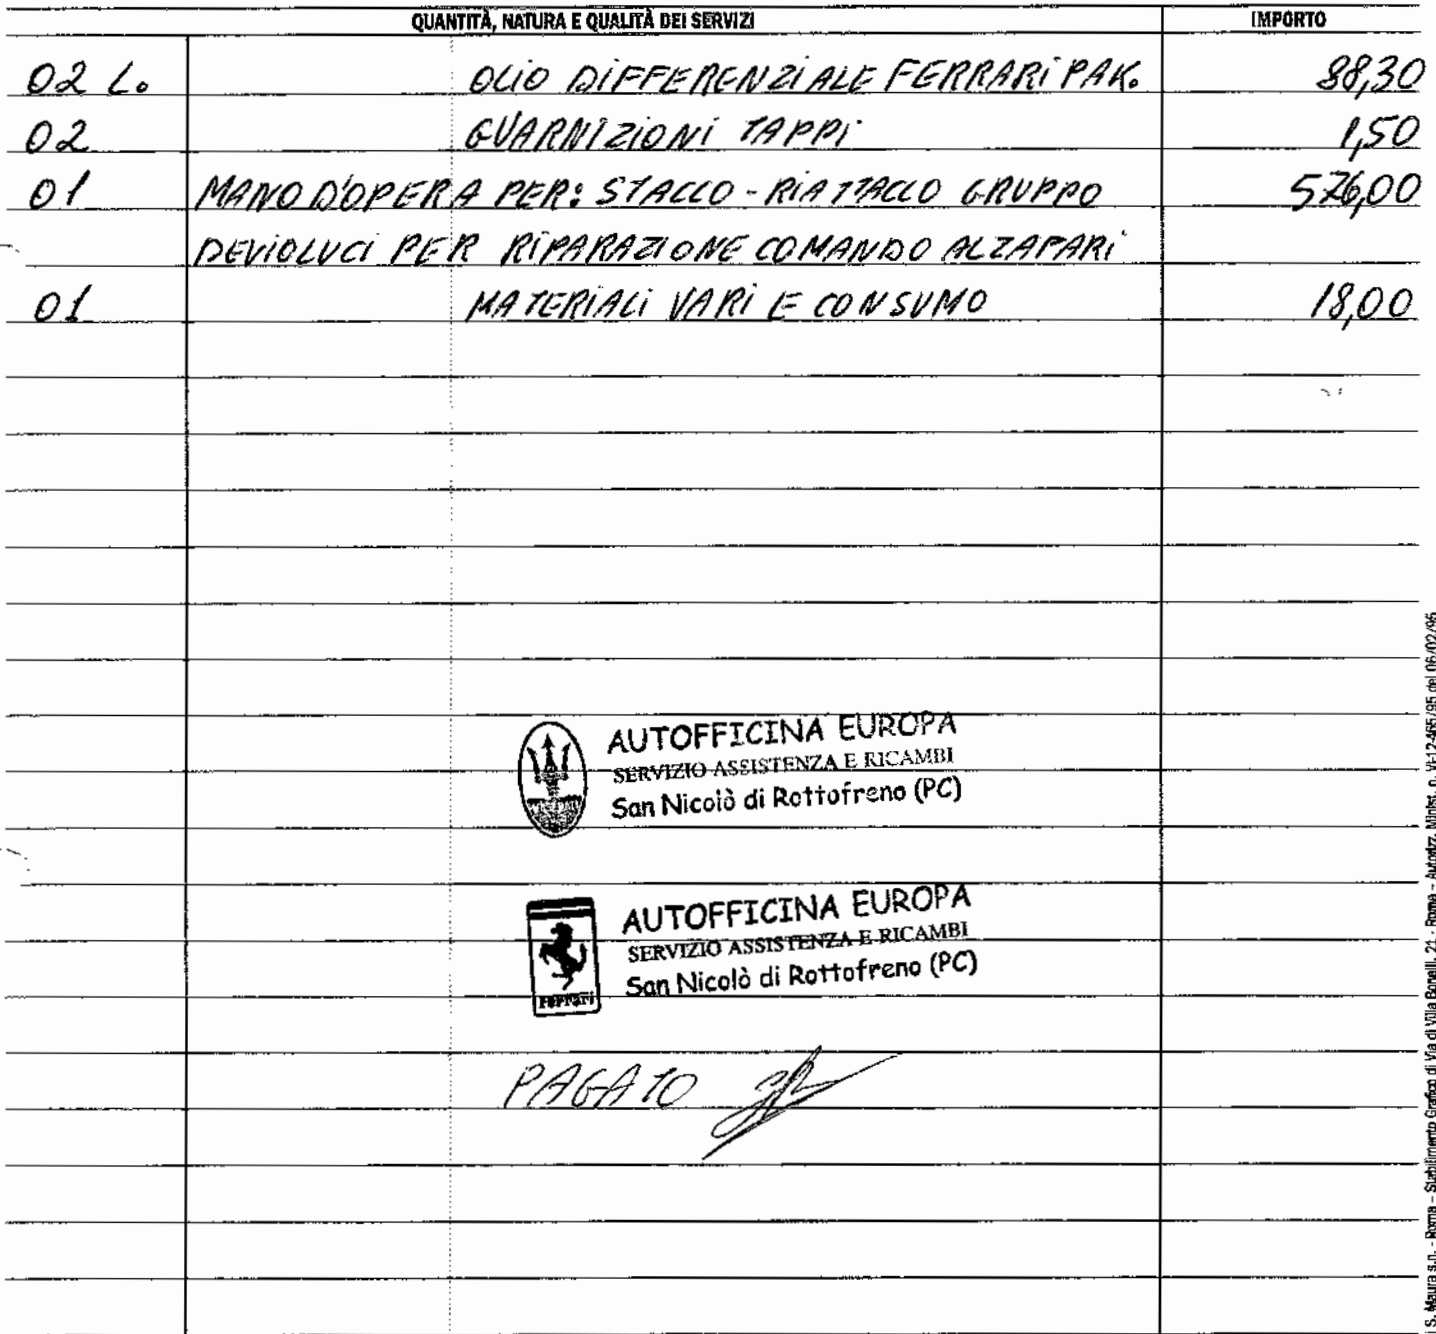 QUANTITÀ, NATURA E QUALITÀ DEI SERVIZI IMPORTO
02 L. OLIO DIFFERENZIALE FERRARI PAK. 88,30
02 GUARNIZIONI TAPPI 1,50
01 MANO D'OPERA PER: STACCO - RIATTACCO GRUPPO 576,00
DEVIOLUCI PER RIPARAZIONE COMANDO ALZAFARI
01 MATERIALI VARI E CONSUMO 18,00
AUTOFFICINA EUROPA
SERVIZIO ASSISTENZA E RICAMBI
San Nicolò di Rottofreno (PC)
AUTOFFICINA EUROPA
SERVIZIO ASSISTENZA E RICAMBI
San Nicolò di Rottofreno (PC)
Ferrari
PAGATO
S. Maura s.n. - Roma - Stabilimento Grafico di Via di Villa Bonelli, 21 - Roma - Autorizz. Minist. n. VI-12-465/95 del 06/02/95